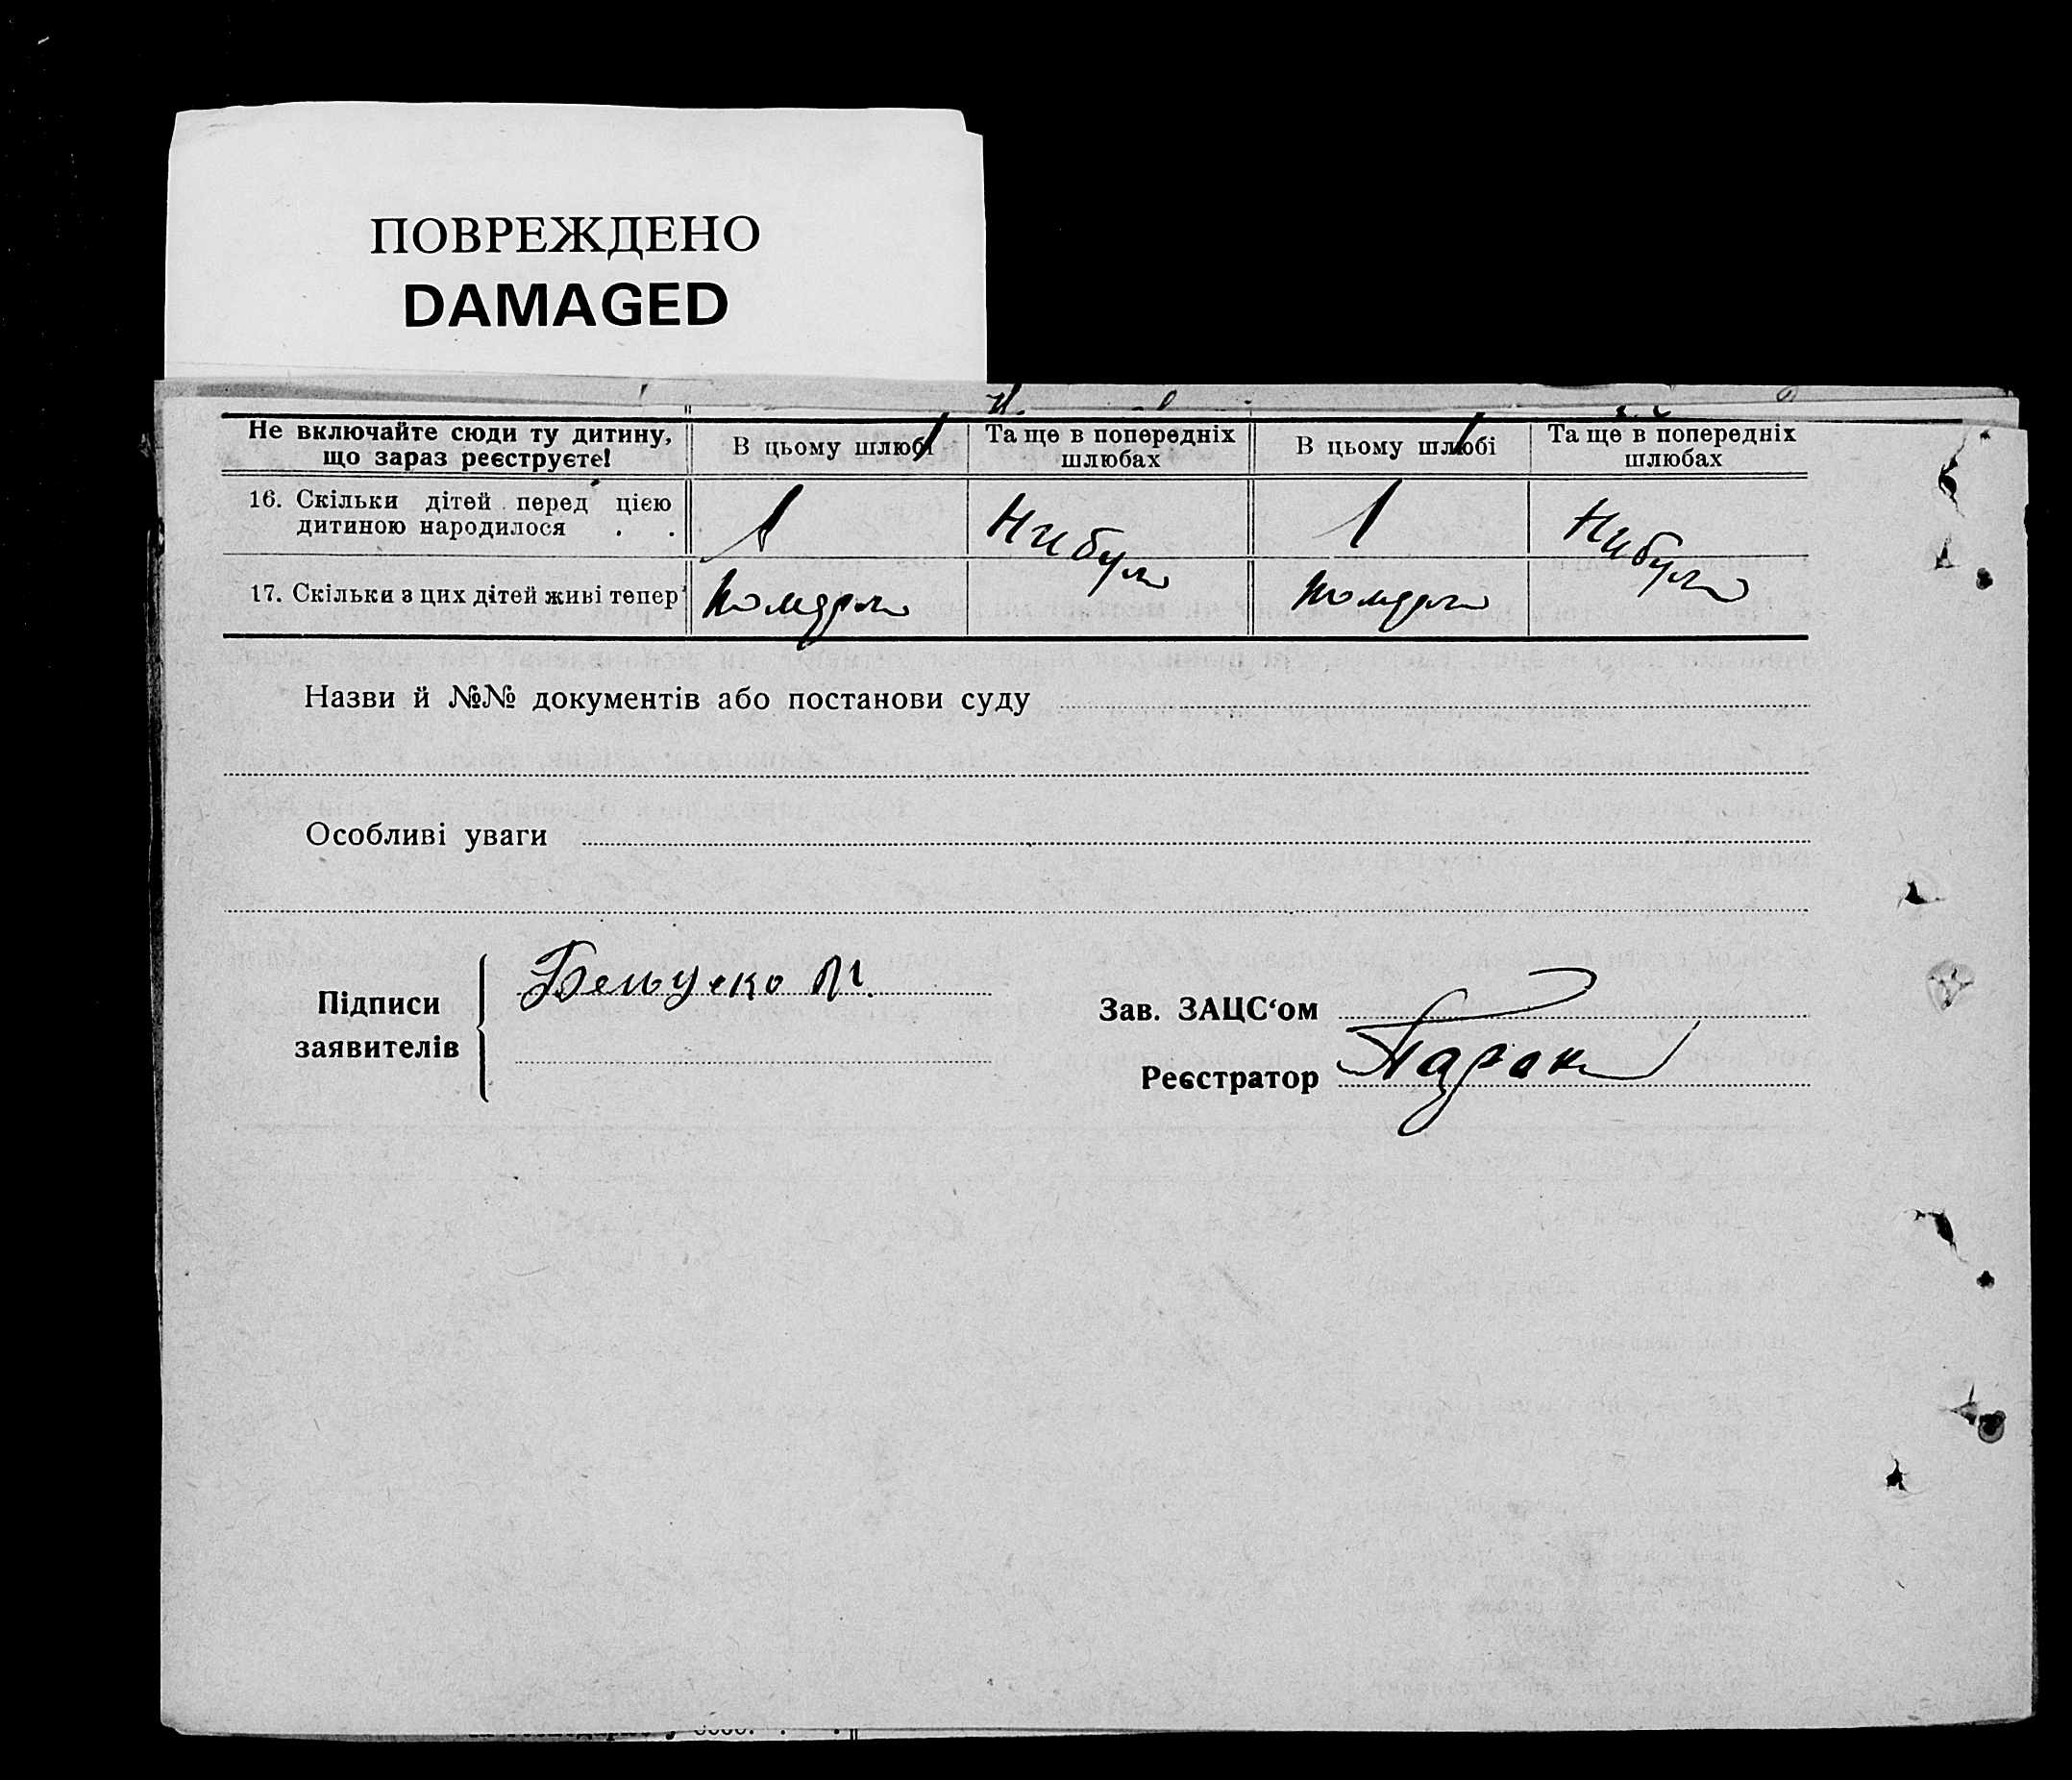 ПОВРЕЖДЕНО
DAMAGED
Не включайте сюди ту дитину, що зараз реєструєте!
В цьому шлюбі
Та ще в попередніх шлюбах
В цьому шлюбі
Та ще в попередніх шлюбах
16. Скільки дітей перед цією дитиною народилося . .
1
Ни були
1
Ни були
17. Скільки з цих дітей живі тепер
Назви й №№ документів або постанови суду
Особливі уваги
Підписи заявителів
Зав. ЗАЦС‘ом
Реєстратор